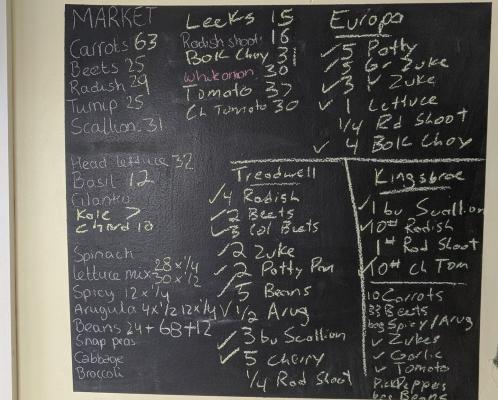 MARKET
Carrots 63
Beets 25
Radish 29
Turnip 25
Scallion 31
Head lettuce 32
Basil 12
Cilantro
Kale 7
Chard 10
Spinach
lettuce mix 28 x 1/4 30 x 1/2
Spicy 12 x 1/4
Arugula 4 x 1/2 12 x 1/4
Beans 24 + 68 + 12
Snap peas
Cabbage
Broccoli
Leeks 15
Radish shoots 16
Bok Choy 31
White onion 30
Tomato 37
Ch Tomato 30
Europa
✓ 5 Patty
✓ 5 Zuke
✓ 3 Zuke
✓ 1 Lettuce
1/4 Rd Shoot
✓ 4 Bok Choy
Treadwell
✓ 4 Radish
✓ 2 Beets
✓ 3 Gol Beets
✓ 2 Zuke
✓ 2 Patty Pan
✓ 5 Beans
✓ 1/2 Arug
✓ 3 bu Scallion
✓ 5 Cherry
1/4 Rad Shoot
Kingsbrae
✓ 1 bu Scallion
10# Radish
1# Rad Shoot
✓ 10# Ch Tom
10 Carrots
33 Beets
bag Spicy/Arug
✓ Zukes
✓ Garlic
✓ Tomato
Pick Peppers
Beans